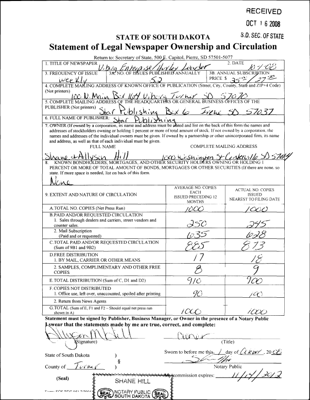 RECEIVED
OCT 16 2008
S.D. SEC. OF STATE
STATE OF SOUTH DAKOTA
Statement of Legal Newspaper Ownership and Circulation
Return to: Secretary of State, 500 E. Capitol, Pierre, SD 57501-5077
1. TITLE OF NEWSPAPER
2. DATE
3. FREQUENCY OF ISSUE
weekly
3A. NO. OF ISSUES PUBLISHED ANNUALLY
52
3B. ANNUAL SUBSCRIPTION PRICE $
4. COMPLETE MAILING ADDRESS OF KNOWN OFFICE OF PUBLICATION (Street, City, County, Staff and ZIP+4 Code)
(Not printers)
SD 57070
5. COMPLETE MAILING ADDRESS OF THE HEADQUARTERS OR GENERAL BUSINESS OFFICES OF THE
PUBLISHER (Not printers)
Star Publishing Box 6 Irene SD 57037
6. FULL NAME OF PUBLISHER:
Star Publishing
7. OWNER (If owned by a corporation, its name and address must be stated and also
addresses of stockholders owning or holding 1 percent or more of total amount of stock. If not owned by a corporation, the
names and addresses of the individual owners must be given. If owned by a partnership or other unincorporated firm, its name
and address, as well as that of each individual must be given.
FULL NAME
COMPLETE MAILING ADDRESS
Shane + Allyson Hill
8. KNOWN BONDHOLDERS, MORTGAGES, AND OTHER SECURITY HOLDERS OWNING OR HOLDING 1
PERCENT OR MORE OF TOTAL AMOUNT OF BONDS, MORTGAGES OR OTHER SECURITIES (If there are none so
state. If more space is needed, list on back of this form.
None
9. EXTENT AND NATURE OF CIRCULATION
AVERAGE NO. COPIES
EACH
ISSUED PRECEDING 12
MONTHS
ACTUAL NO. COPIES
ISSUED
NEAREST TO FILING DATE
A. TOTAL NO. COPIES (Net Press Run)
1000
1000
B. PAID AND/OR REQUESTED CIRCULATION
1. Sales through dealers and carriers, street vendors and
counter sales
250
245
2. Mail Subscription
(Paid and/or requested)
635
628
C. TOTAL PAID AND/OR REQUESTED CIRCULATION
(Sum of 9B1 and 9B2)
885
873
D. FREE DISTRIBUTION
1. BY MAIL, CARRIER OR OTHER MEANS
17
18
2. SAMPLES, COMPLIMENTARY AND OTHER FREE
COPIES
8
9
E. TOTAL DISTRIBUTION (Sum of C, D1 and D2)
910
900
F. COPIES NOT DISTRIBUTED
1. Office use, left over, unaccounted, spoiled after printing
90
100
2. Return from News Agents
G. TOTAL (Sum of E, F1 and F2 - Should equal net press run
shown in A)
1000
1000
Statement must be signed by Publisher, Business Manager, or Owner in the presence of a Notary Public
I swear that the statements made by me are true, correct, and complete:
Owner
(Signature)
(Title)
State of South Dakota
Sworn to before me this 1 day of
County of Turner
Notary Public
(Seal)
SHANE HILL
NOTARY PUBLIC
SOUTH DAKOTA